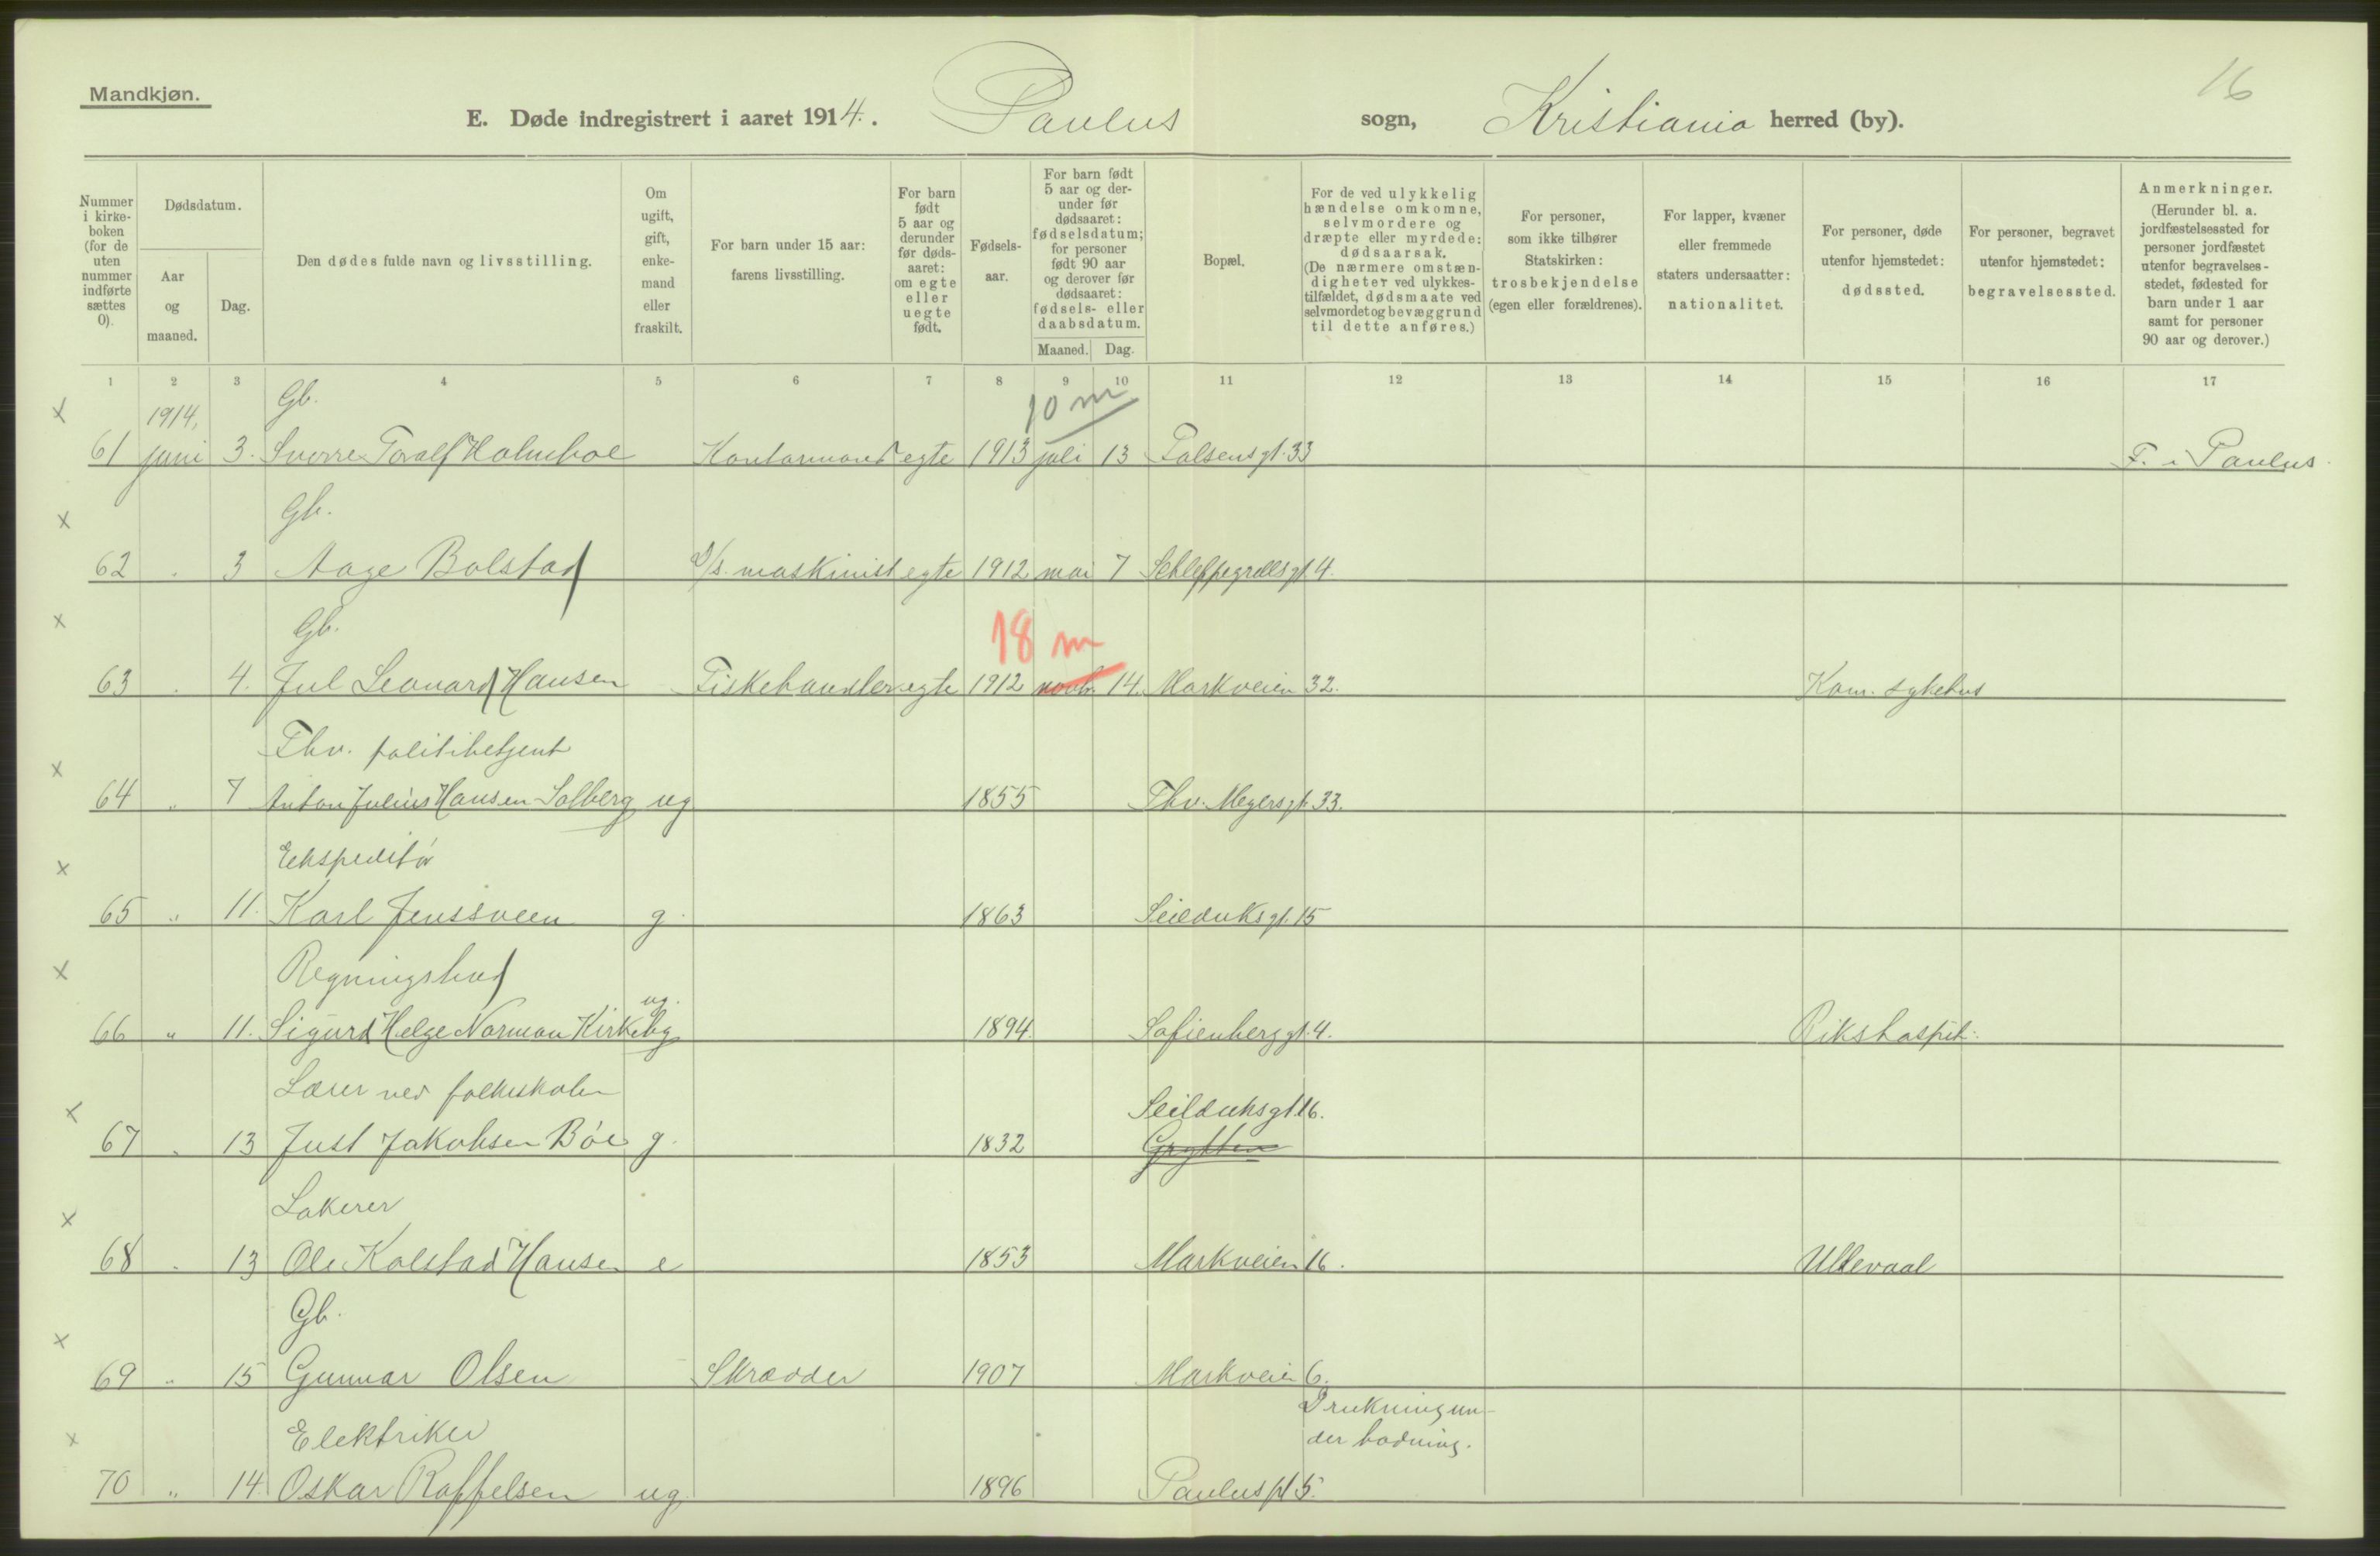 Mandkjøn.
16
E. Døde indregistrert i aaret 1914. Paulus sogn, Kristiania herred (by).
Nummer i kirke-boken (for de uten nummer indførte sættes 0).
Dødsdatum.
Aar og maaned.
Dag.
Den dødes fulde navn og livsstilling.
Om ugift, gift, enke-mand eller fraskilt.
For barn under 15 aar: farens livsstilling.
For barn født 5 aar og derunder før døds-aaret: om egte eller uegte født.
Fødsels-aar.
For barn født 5 aar og der-under før dødsaaret: fødselsdatum; for personer født 90 aar og derover før dødsaaret: fødsels- eller daabsdatum.
Maaned. Dag.
Bopæl.
For de ved ulykkelig hændelse omkomne, selvmordere og dræpte eller myrdede: dødsaarsak. (De nærmere omstæn-digheter ved ulykkes-tilfældet, dødsmaate ved selvmordet og bevæggrund til dette anføres.)
For personer, som ikke tilhører Statskirken: trosbekjendelse (egen eller forældrenes).
For lapper, kvæner eller fremmede staters undersaatter: nationalitet.
For personer, døde utenfor hjemstedet: dødssted.
For personer, begravet utenfor hjemstedet: begravelsessted.
Anmerkninger. (Herunder bl. a. jordfæstelsessted for personer jordfæstet utenfor begravelses-stedet, fødested for barn under 1 aar samt for personer 90 aar og derover.)
1 2 3 4 5 6 7 8 9 10 11 12 13 14 15 16 17
x 1914, Gb. 10 m
61 juni 3. Sverre Toralf Holmboe Kontormand egte 1913 juli 13 Falsensgt. 33 F. i Paulus.
x Gb.
62 . 3 Aage Bolstad D/s. maskinist egte 1912 mai 7 Schleppegrellsgt. 4.
x Gb. 18 m
63 . 4. Jul Leonard Hansen Fiskehandler egte 1912 novb. 14. Markveien 32. Kom. sykehus
x Fhv. politibetjent
64 " 7 Anton Julius Hansen Solberg ug 1855 Thv. Meyersgt. 33.
x Ekspeditør
65 " 11. Karl Jenssveen g. 1863 Seilduksgt. 15
x Regningsbud
66 " 11. Sigurd Helge Norman Kirkeby ug. 1894. Sofienberggt. 4. Rikshospit.
x Lærer ved folkeskolen Seilduksgt. 16.
67 . 13 Just Jakobsen Bøe g. 1832 Grytten
x Lakerer
68 . 13 Ole Kolstad Hansen e 1853 Markveien 16. Ullevaal
x Gb.
69 " 15 Gunnar Olsen Skrædder 1907 Markveien 6.
x Elektriker Drukning un-
der badning.
70 " 14. Oskar Raffelsen ug. 1896 Paulus pl. 5.